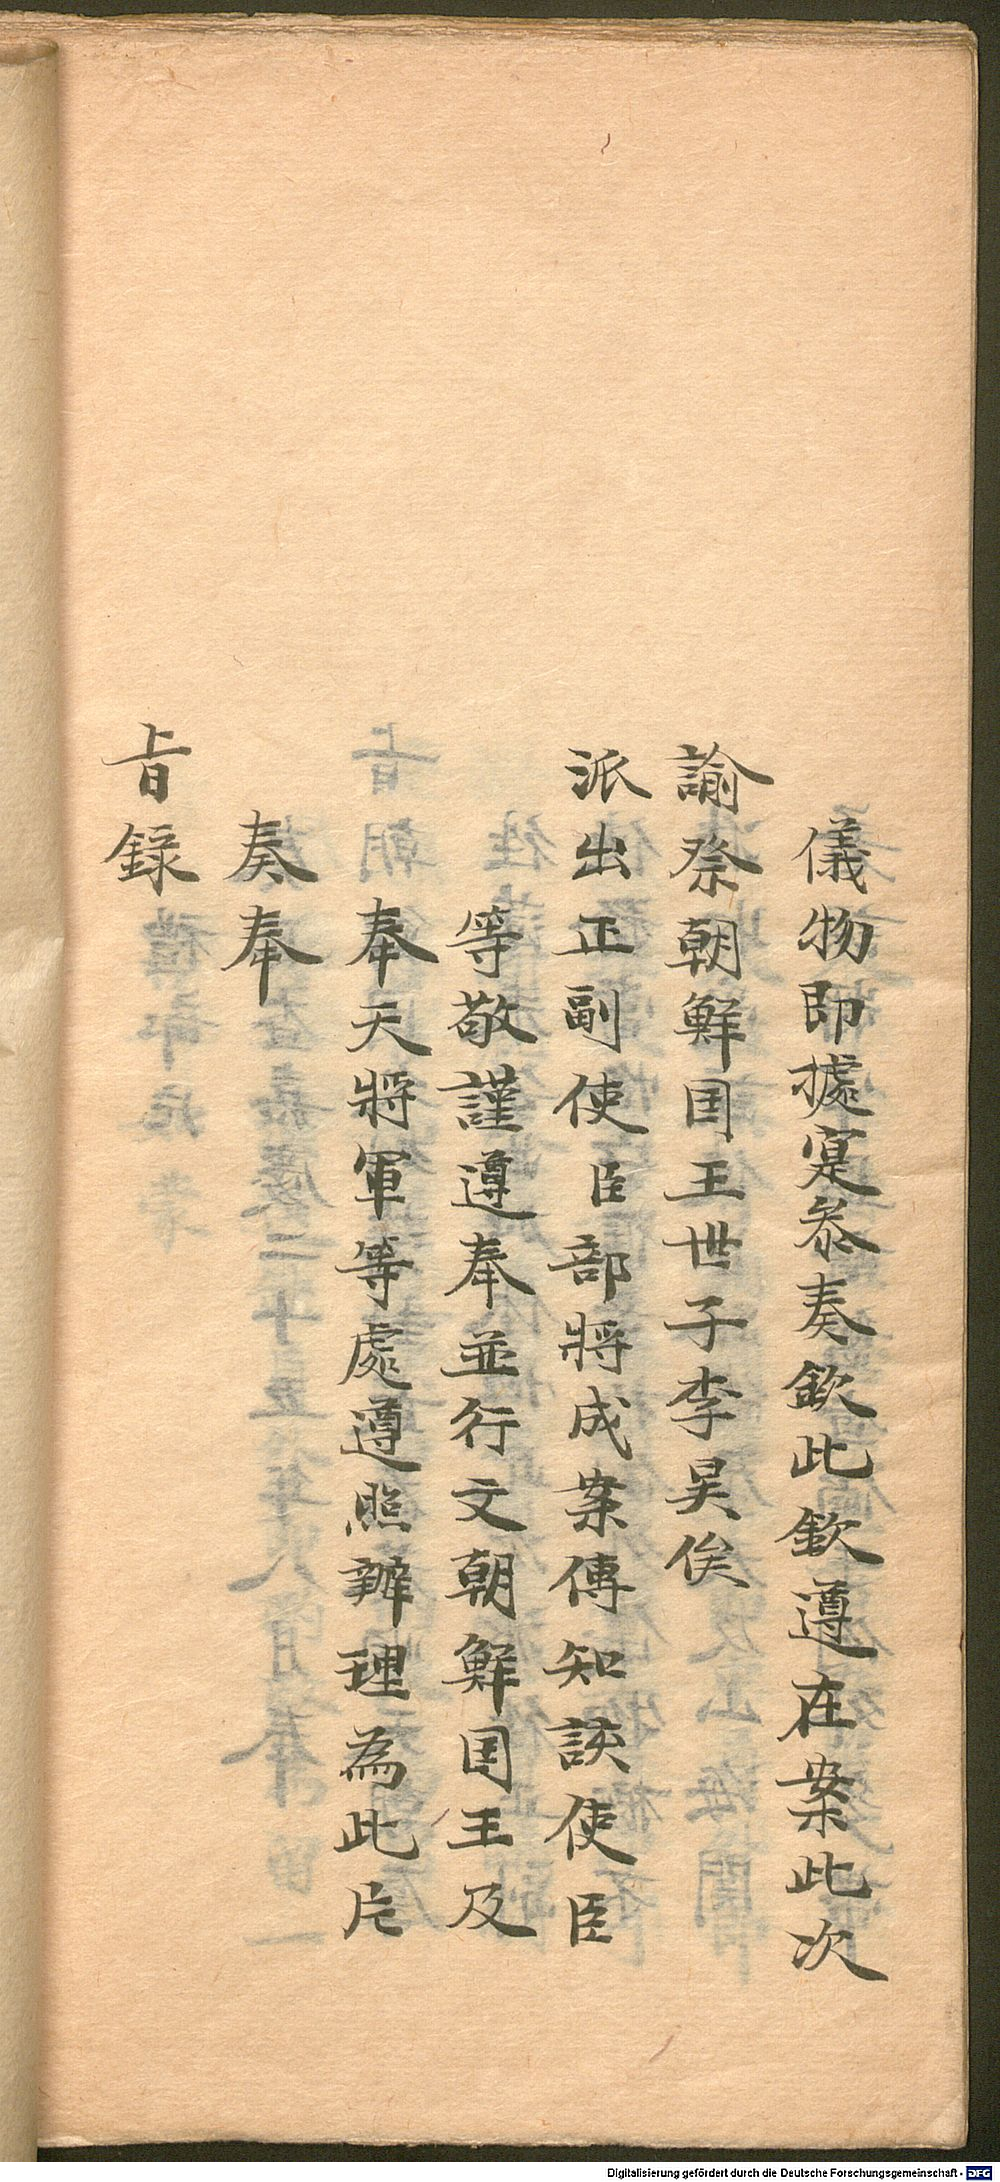 儀物即據寔叅奏欽此欽遵在案此次
諭祭朝鮮囯王世子李昊俟
派出正副使臣部將成案傳知該使臣
等敬謹遵奉並行文朝鮮囯王及
奉天將軍等處遵照辦理為此片
奏奉
旨錄
Digitalisierung gefördert durch die Deutsche Forschungsgemeinschaft - DFG